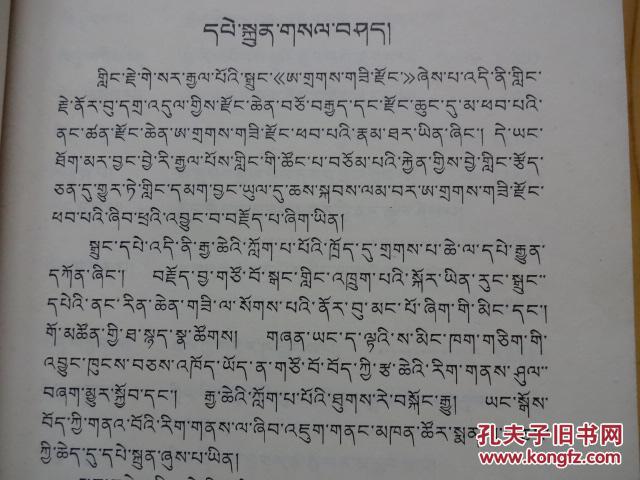 དཔེ་སྐྲུན་གསལ་བཤད།
གླིང་རྗེ་གེ་སར་རྒྱལ་པོའི་སྒྲུང་《ཨ་གྲགས་གཟི་རྫོང་》ཞེས་པ་འདི་ནི་གླིང་
རྗེ་ནོར་བུ་དགྲ་འདུལ་གྱིས་རྫོང་ཆེན་བཅོ་བརྒྱད་དང་རྫོང་ཆུང་དུ་མ་ཕབ་པའི་
ནང་ཚན་རྫོང་ཆེན་ཨ་གྲགས་གཟི་རྫོང་ཕབ་པའི་རྣམ་ཐར་ཡིན་ཞིང་། དེ་ཡང་
ཐོག་མར་བྱང་བྱེ་རི་རྒྱལ་པོས་གླིང་གི་ཚོང་པ་བཅོམ་པའི་རྐྱེན་གྱིས་བྱེ་གླིང་རྩོད་
ཅན་དུ་གྱུར་ཏེ་གླིང་དམག་བྱང་ཡུལ་དུ་ཆས་སྐབས་ལམ་བར་ཨ་གྲགས་གཟི་རྫོང་
ཕབ་པའི་ཞིབ་ཕྲའི་འབྱུང་བ་བརྗོད་པ་ཞིག་ཡིན།
སྒྲུང་དཔེ་འདི་ནི་རྒྱ་ཆེའི་ཀློག་པ་པོའི་ཁྲོད་དུ་གྲགས་པ་ཆེ་ལ་དཔེ་རྒྱུན་
དཀོན་ཞིང་། བརྗོད་བྱ་གཙོ་བོ་སྒང་གླིང་འཁྲུག་པའི་སྐོར་ཡིན་རུང་སྒྲུང་
དཔེའི་ནང་རིན་ཆེན་གཟི་ལ་སོགས་པའི་ནོར་བུ་མང་པོ་ཞིག་གི་མིང་དང་།
གོ་མཚོན་གྱི་ཐ་སྙད་སྣ་ཚོགས། གཞན་ཡང་ད་ལྟའི་ས་མིང་ཁག་གཅིག་གི་
འབྱུང་ཁུངས་བཅས་འཁོད་ཡོད་ན་གཙོ་བོ་བོད་ཀྱི་རྩ་ཆེའི་རིག་གནས་ཤུལ་
བཞག་མྱུར་སྐྱོབ་དང་། རྒྱ་ཆེའི་ཀློག་པ་པོའི་ཐུགས་རེ་བསྐོང་རྒྱུ། ཡང་སྒོས་
བོད་ཀྱི་གནའ་བོའི་རིག་གནས་ལ་ཞིབ་འཇུག་གནང་མཁན་ཚོར་སྨན་
ཀྱི་ཆེད་དུ་དཔེ་སྐྲུན་ཞུས་པ་ཡིན།
孔夫子旧书网
KONGFZ.COM